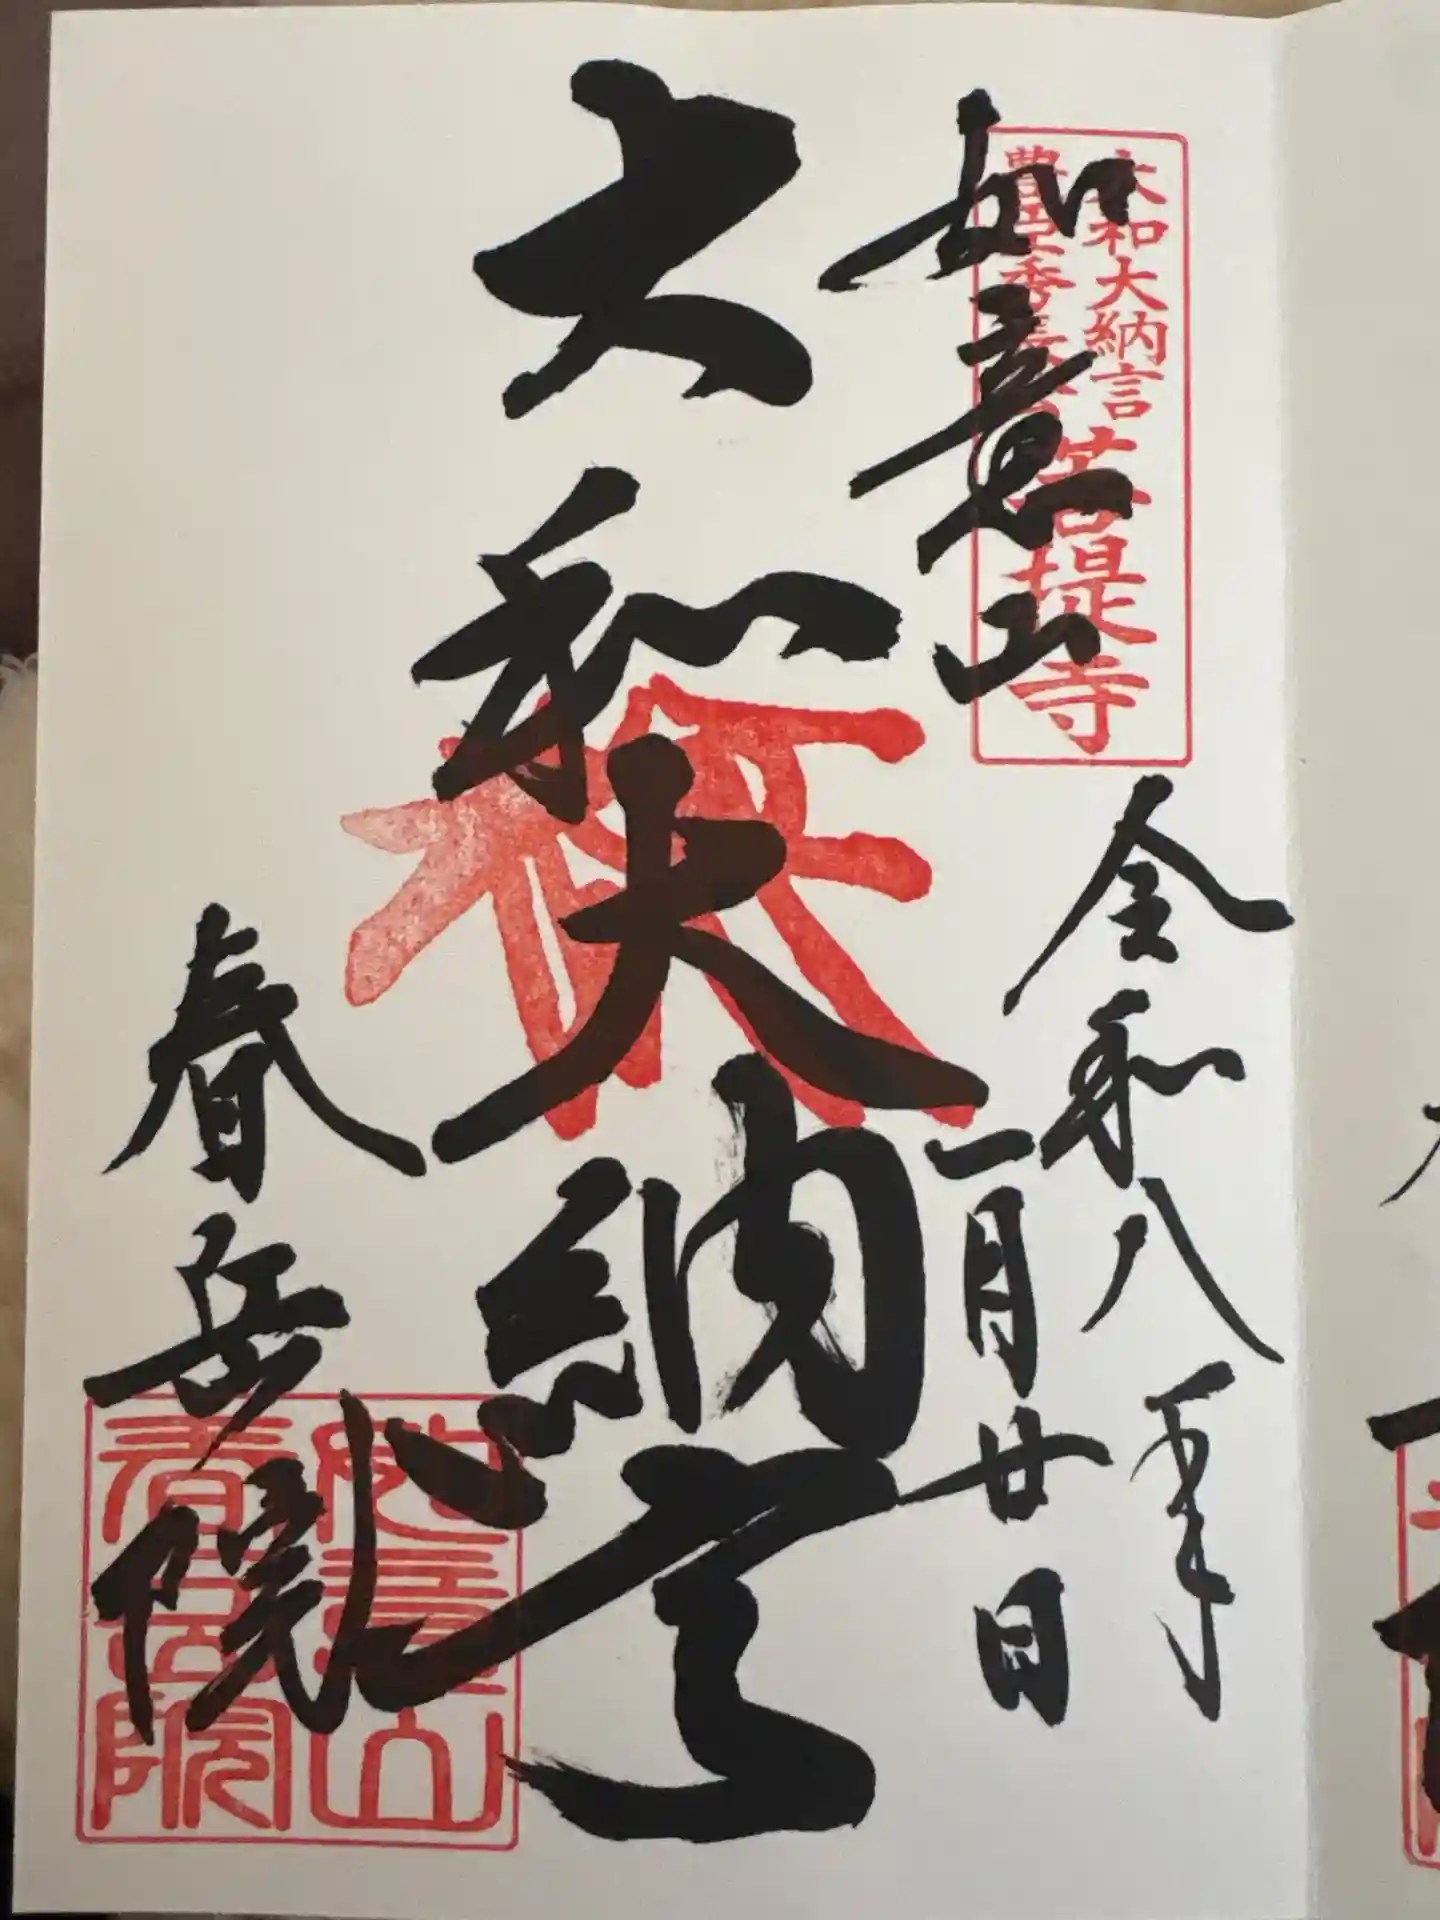 大和大納言
豊臣秀長
菩提寺
如意山
令和八年
一月廿日
大和大納言
春岳院
如意山
春岳院